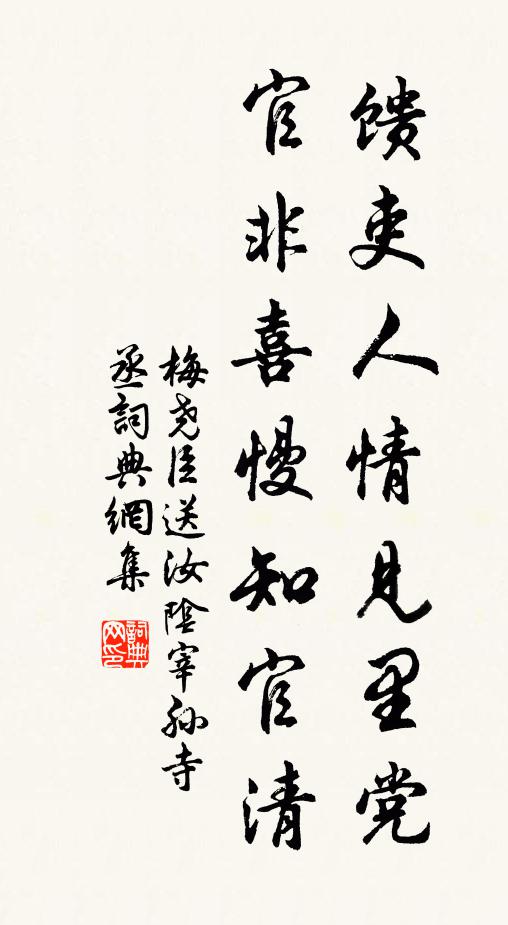 馈吏人情见里党
官非喜慢知官清
梅尧臣送汝陰宰孙寺
丞詞典網集
詞典网印